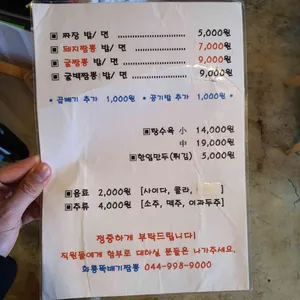 ▣ 짜장 밥/ 면 5,000원
▣ 돼지짬뽕 밥/ 면 7,000원
▣ 굴짬뽕 밥/ 면 9,000원
▣ 굴백짬뽕 밥/ 면 9,000원
* 곱빼기 추가 1,000원 * 공기밥 추가 1,000원 *
▣탕수육 小 14,000원
中 19,000원
▣한입만두(튀김) 5,000원
▣음료 2,000원 [사이다, 콜라, ]
▣주류 4,000원 [소주, 맥주, 이과두주]
정중하게 부탁드립니다!
직원들에게 함부로 대하실 분들은 나가주세요.
화통뚝배기짬뽕 044-998-9000